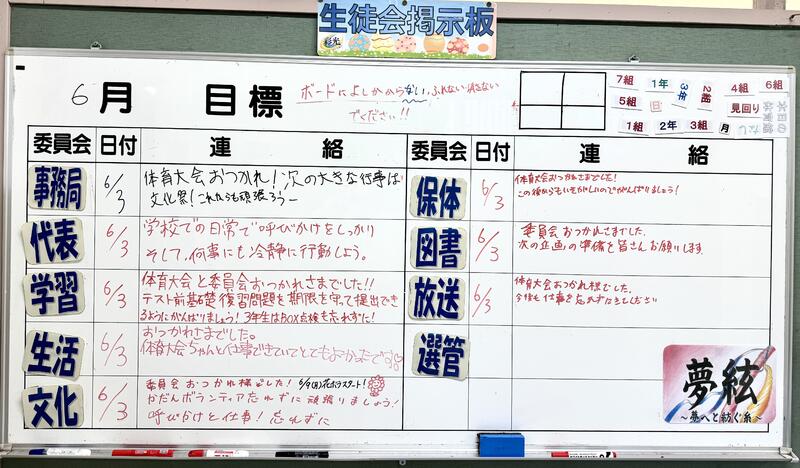 生徒会掲示板
6月 目標
ボードによしかからない、ふれない、消さない
でください!!
7組
1年
3年
2組
4組
6組
5組
見回り
1組
2年
3組
月
委員会 日付 連絡
事務局 6/3 体育大会おつかれ!次の大きな行事は
文化祭!これからも頑張ろう
代表 6/3 学校での日常で呼びかけをしっかり
そして、何事にも冷静に行動しよう。
学習 6/3 体育大会と委員会おつかれさまでした!!
テスト前基礎復習問題を期限を守って提出でき
るようにがんばりましょう!3年生はBOX点検も忘れずに!
生活 6/3 おつかれさまでした。
体育大会ちゃんと仕事できていてとてもよかったです
文化 6/3 委員会おつかれ様でした!6/9(月)花ボラスタート!
かだんボランティア忘れずに頑張りましょう!
呼びかけと仕事!忘れずに
委員会 日付 連絡
保体 6/3 体育大会おつかれさまでした!
この後からもいそがしいのでがんばりましょう!
図書 6/3 委員会おつかれさまでした。
次の企画の準備を皆さんお願いします
放送 6/3 体育大会おつかれ様でした。
今後も仕事を忘れずに
選管
夢絃
~夢へと紡ぐ糸~